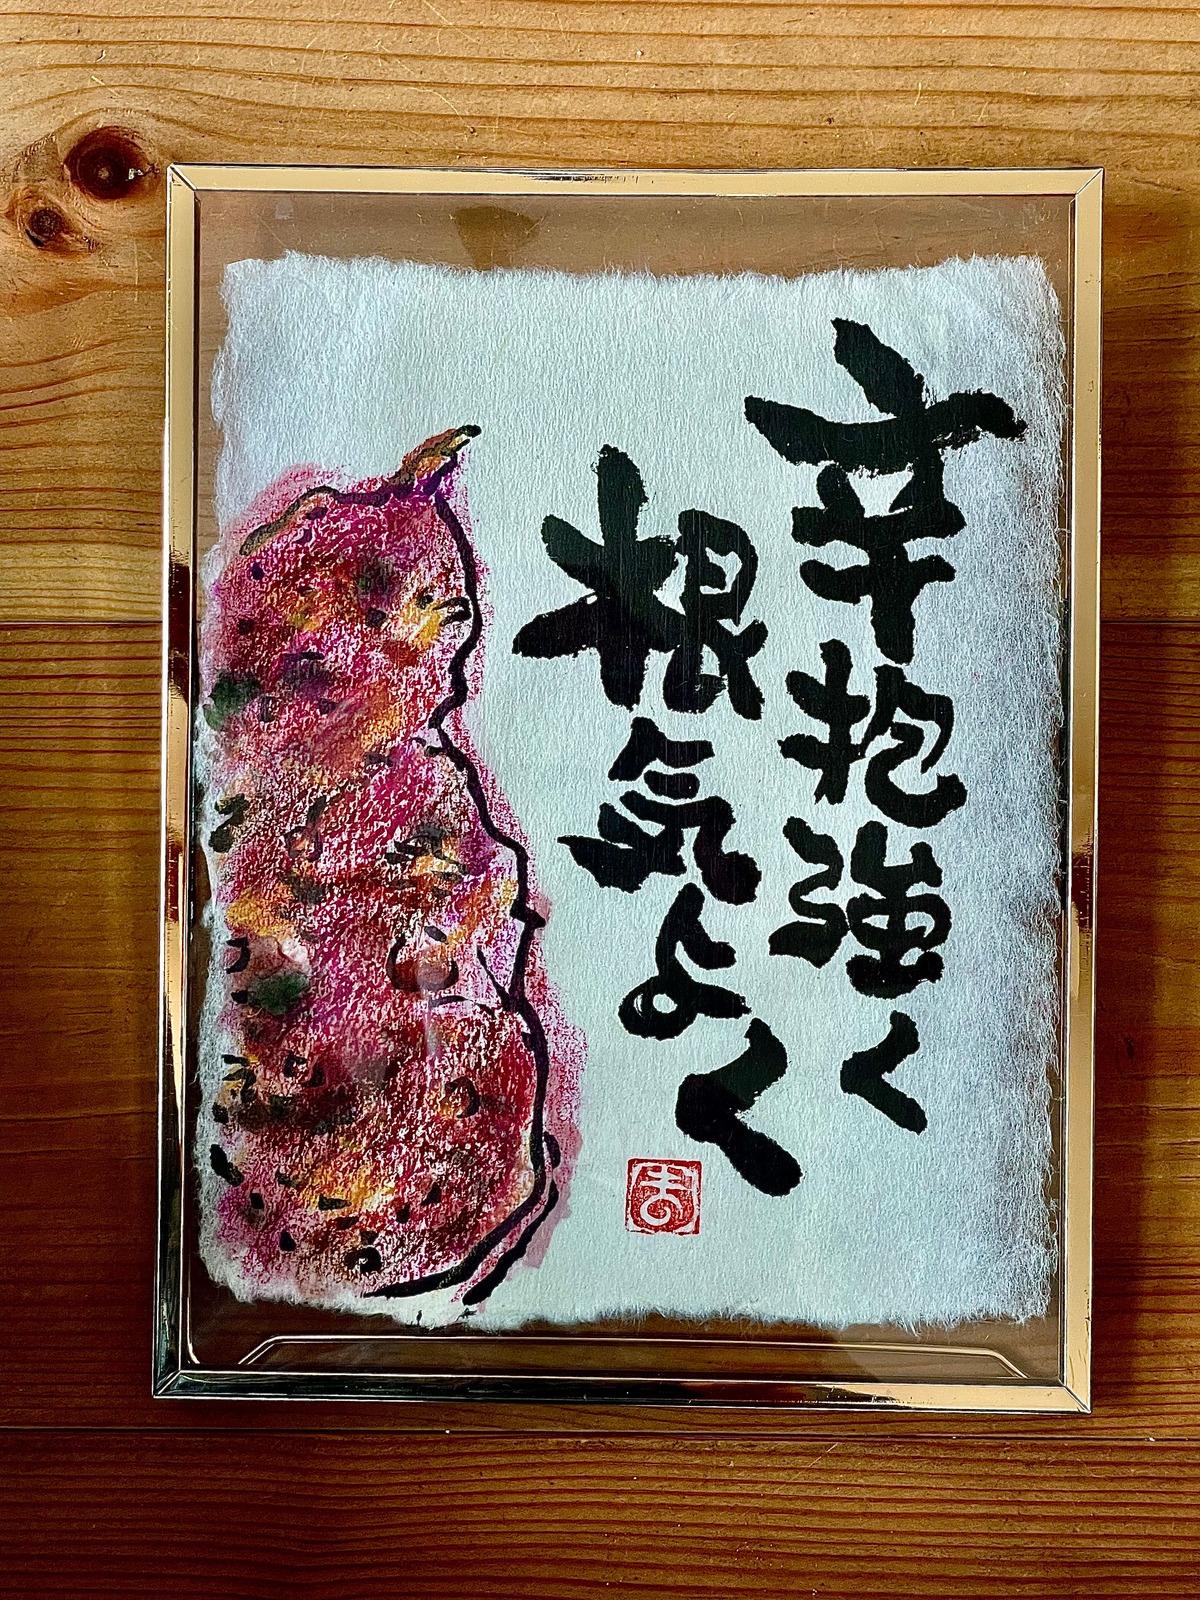 辛抱強く
根気よく